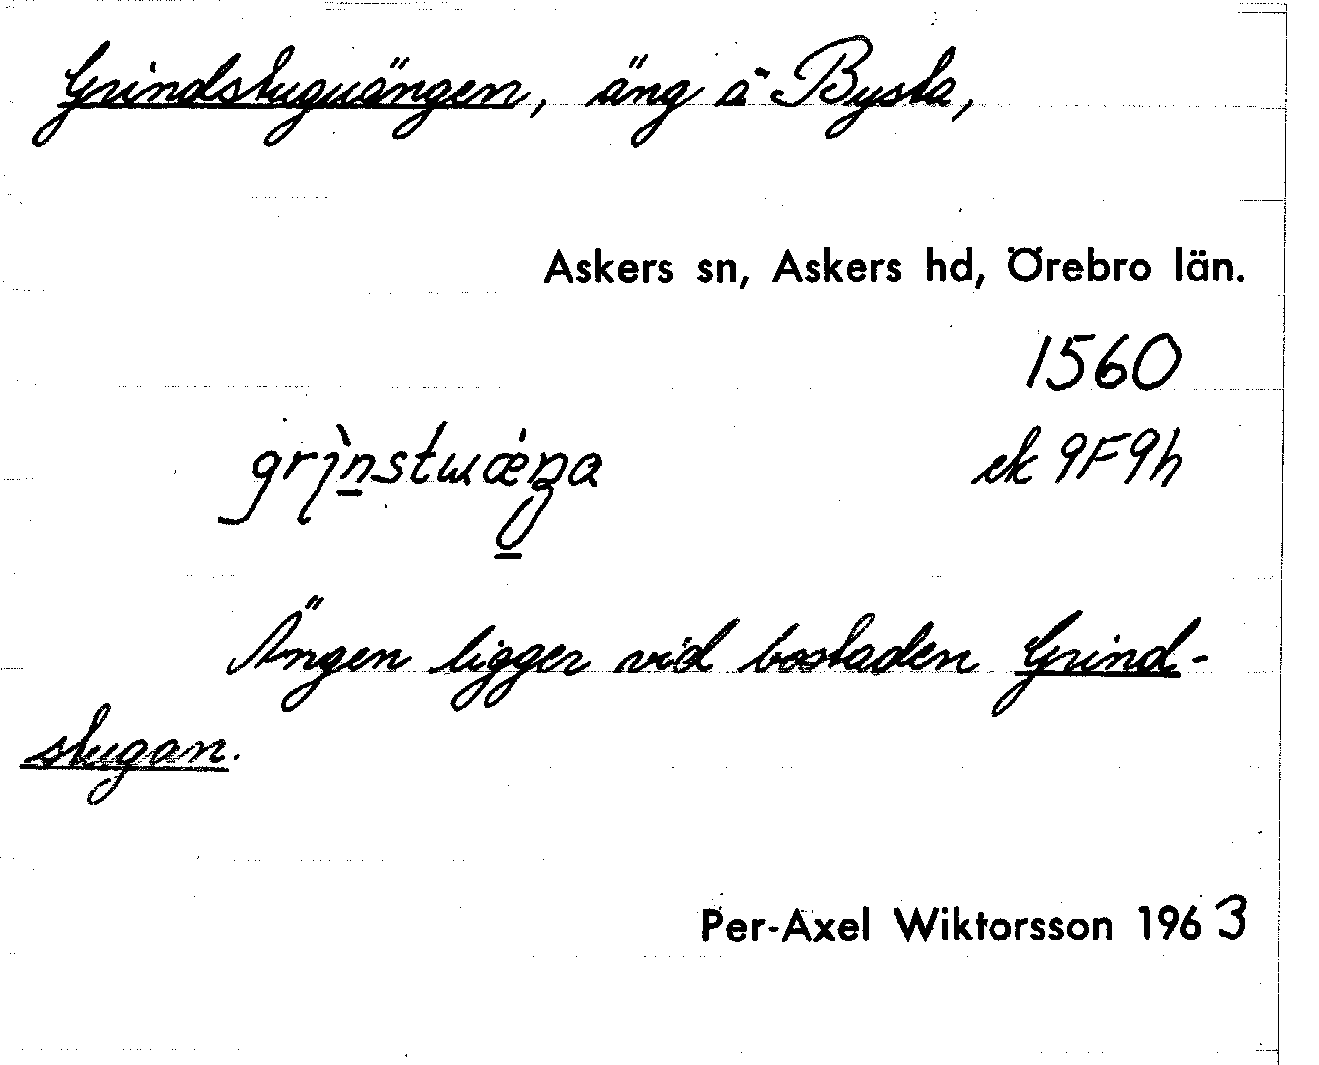 Grindstuguängen, äng å Bysta,
Askers sn, Askers hd, Örebro län.
1560
ek 9F9h
Ängen ligger vid bostaden Grind-
stugan.
Per-Axel Wiktorsson 1963